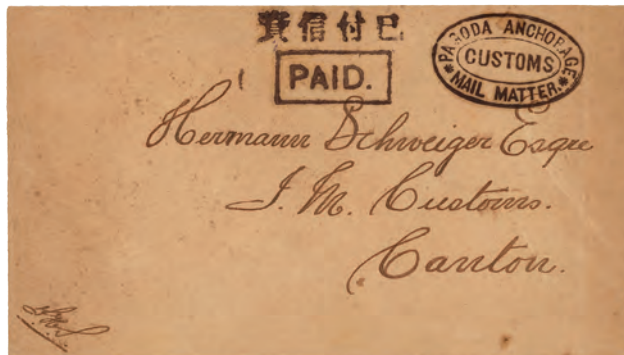 已付信資
PAID.
PAGODA ANCHORAGE
CUSTOMS
MAIL MATTER.
Hermann Schweiger Esqre
I. M. Customs.
Canton.